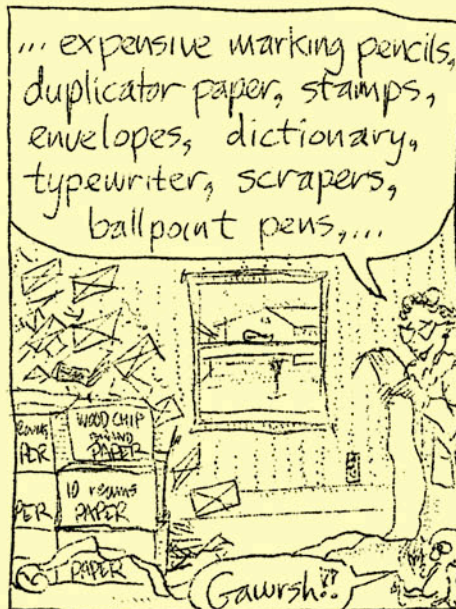 ... expensive marking pencils,
duplicator paper, stamps,
envelopes, dictionary,
typewriter, scrapers,
ballpoint pens,...
WOOD CHIP
PAPER
PER
10 reams
PAPER
PER
PAPER
Gawrsh!!